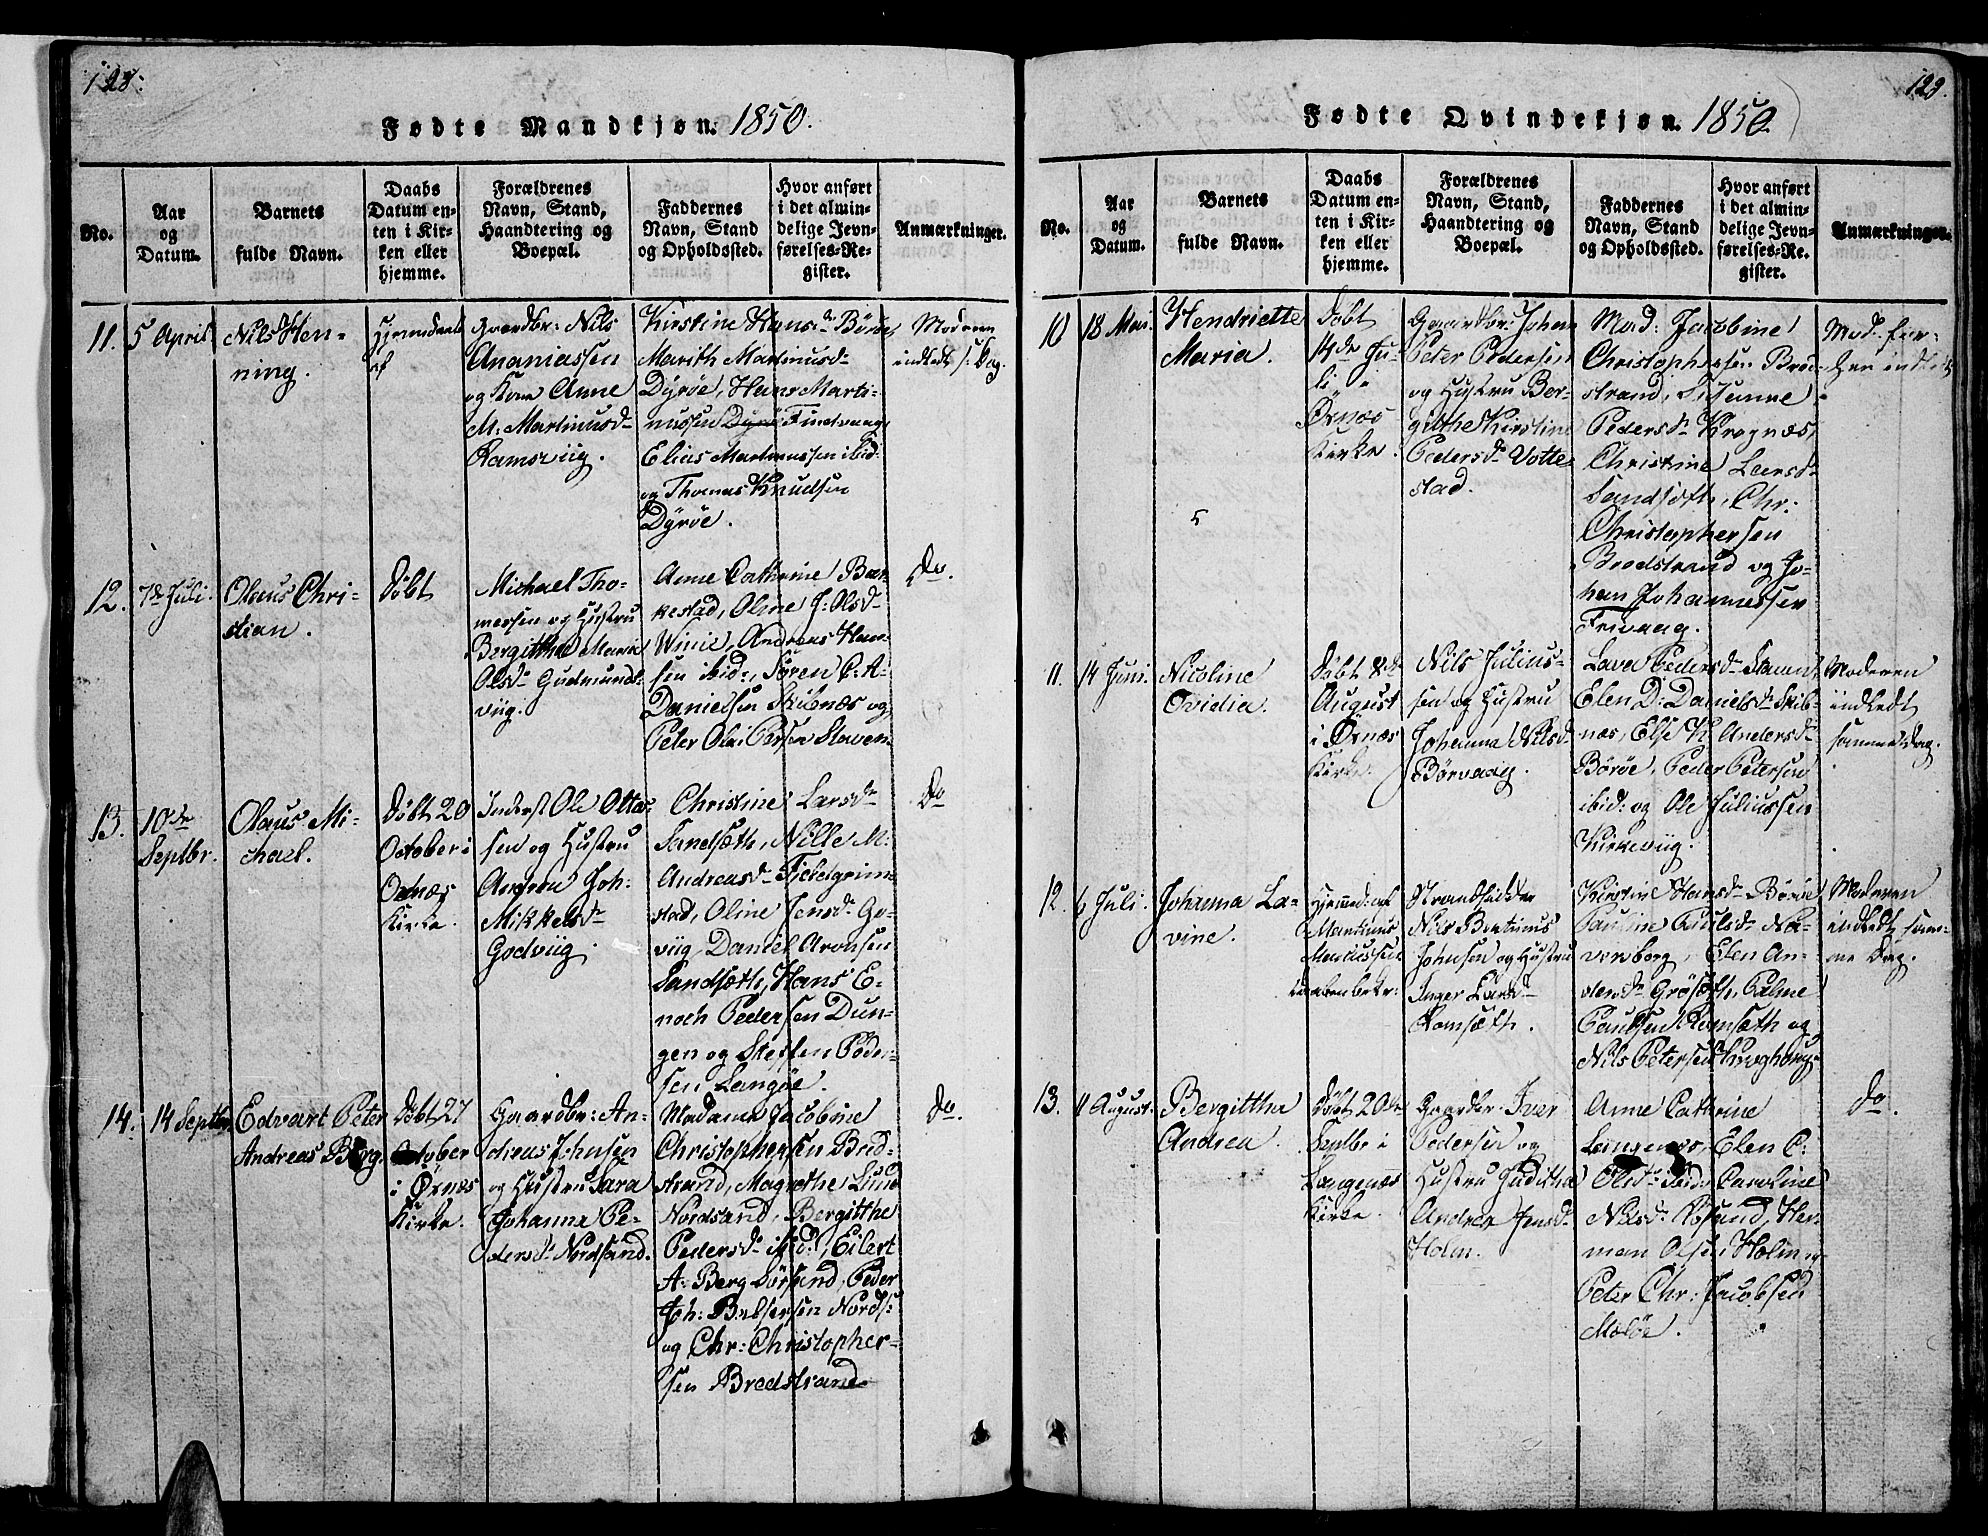 123.
Fødte Mandkjøn. 1850.
No.
Aar
og
Datum.
Barnets
fulde Navn.
Daabs
Datum en-
ten i Kir-
ken eller
hjemme.
Forældrenes
Navn, Stand,
Haandtering og
Boepæl.
Faddernes
Navn, Stand
og Opholdssted.
Hvor anført
i det almin-
delige Jevn-
førelses-Re-
gister.
Anmærkninger.
11.
5 April
Nils Hen-
ning.
Hjemedøbt
af
Gaardbr: Nils
Ananiassen
og Kone Anne
M: Martinusd.
Ramsviig.
Kirstine Hansd. Børøe
Marith Martinusd.
Dyrøe, Hans Marti-
nussen Dyrø Findvaag
Elias Martinussen ibid:
og Thomas Knudsen
Dyrøe.
Moderen
indledt s: Dag.
12.
7de Juli.
Olaus Chri-
stian.
Døbt
Michael Tho-
mersen og Hustru
Bergitthe Maria
Olsd. Gudmunds-
viig.
Anne Cathrine Bar-
kestad, Oline J: Olsd.
Winie, Andreas Han-
sen ibid:, Søren C: A-
Danielsen Skibnæs og
Peter Olai Persen Staven.
Do.
13.
10de
Septbr.
Olaus Mi-
chael.
Døbt 20
October i
Oxnæs
Kirke.
Inderst Ole Otte-
sen og Hustru
Andrea Joh-
Mikkelsd.
Godviig.
Christine Larsd.
Sandsæth, Nille M:
Andreasd. Tidelgrim-
stad, Oline Jensd. Go-
viig, Daniel Aronsen
Sandsæth, Hans E-
noch Pedersen Dun-
gen og Steffen Peder-
sen Langøe.
Do
14.
14 Septbr.
Edvart Peter
Andreas Berg.
Døbt 27
October
i Øxnæs
Kirke.
Gaardbr: An-
dreas Johnsen
og Hustru Sara
Johanna Pe-
dersd. Nordsand.
Madame Jacobine
Christophersen Bred-
strand, Magrethe Lund
Nordsand, Bergitthe
Pedersd. ibid:, Eilert
A: Berg Sørsand, Peder
Joh: Baltsersen Nords:
og Chr: Christopher-
sen Bredstrand.
do.
123.
Fødte Qvindekjøn. 1850.
No.
Aar
og
Datum.
Barnets
fulde Navn.
Daabs
Datum en-
ten i Kir-
ken eller
hjemme.
Forældrenes
Navn, Stand,
Haandtering og
Boepæl.
Faddernes
Navn, Stand
og Opholdssted.
Hvor anført
i det almin-
delige Jevn-
førelses-Re-
gister.
Anmærkninger.
10
18 Mai.
Hendriette
Maria.
Døbt
14de Ju-
li i
Øxnæs
Kirke.
Gaardbr: Johan
Peter Pedersen
og Hustru Ber-
gitthe Kirstine
Pedersd. Votte
stad.
Mad: Jacobine
Christophersen Bred-
strand, Susanne
Pedersd. Krognæs,
Christine Larsd.
Sandsæth, Chr:
Christophersen
Bredstrand og Jo-
han Johannessen
Frivaag.
Mod: før-
hen indledt
11.
14 Juni.
Nicoline
Ovidia.
Døbt
August
i Øxnæs
Kirke.
Nils Julius-
sen og Hustru
Johanna Nilsd.
Børvaag.
Lava Pedersd.
Elen D: Danielsd. Skib-
næs, Else K Andersd.
Børøe, Peder Petersen
ibid: og Ole Juliussen
Kirkeviig.
Moderen
indledt
samme Dag.
12.
6 Juli.
Johanna La-
vine.
Hjemmed: af
Martinus
Mariussen
Strandsidder
Nils Bentinus
Johnsen og Hustru
Inger Larsd.
Romsæth.
Kirstine Hansd. Børøe
Pauline Paulsd. Na-
versberg, Elen An-
dersd. Grøsæth, Palme
Paulsen Romsæth og
Nils Petersen
Moderen
indledt sam-
me Dag.
13.
11 August.
Bergittha
Andrea.
Døbt 20de
Septbr i
Langenæs
Kirke.
Gaardbr: Iver
Pedersen og
Hustru Juditha
Andrea Jensd.
Holm.
Anne Cathrine
Langenæs, Elen C:
Olsd. ibid: Caroline
Nilsd. Røsund, Her-
man Olsen Holm og
Peter Chr: Jacobsen
Meløe.
do.